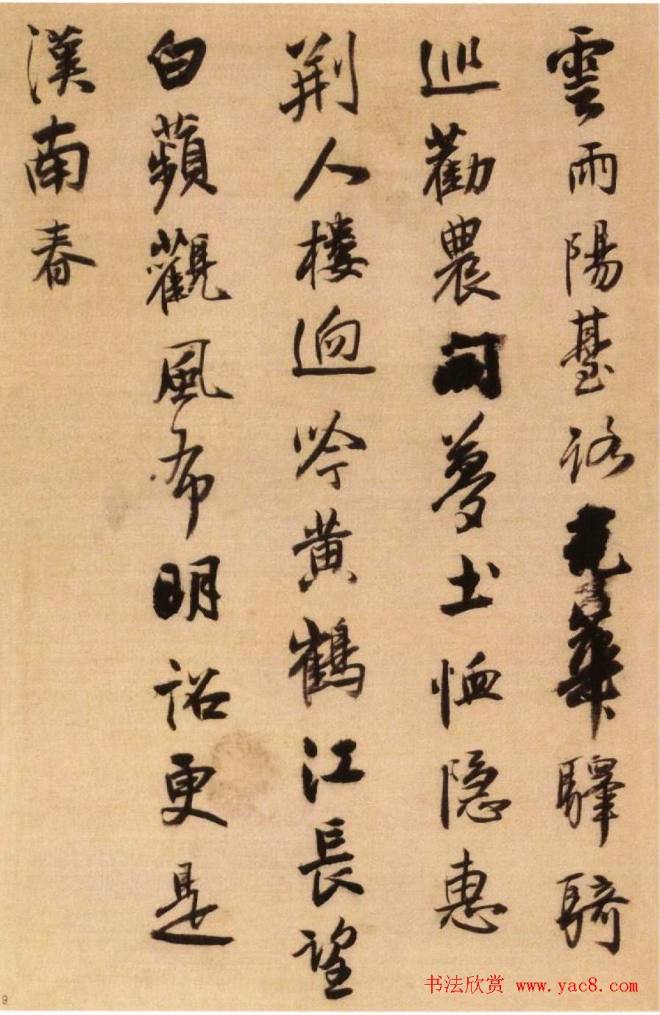 雲雨陽臺路光華驛騎
巡勸農開夢土恤隱惠
荊人樓迥吟黄鶴江長望
白蘋觀風布明詔更是
漢南春
书法欣赏 www.yac8.com
9